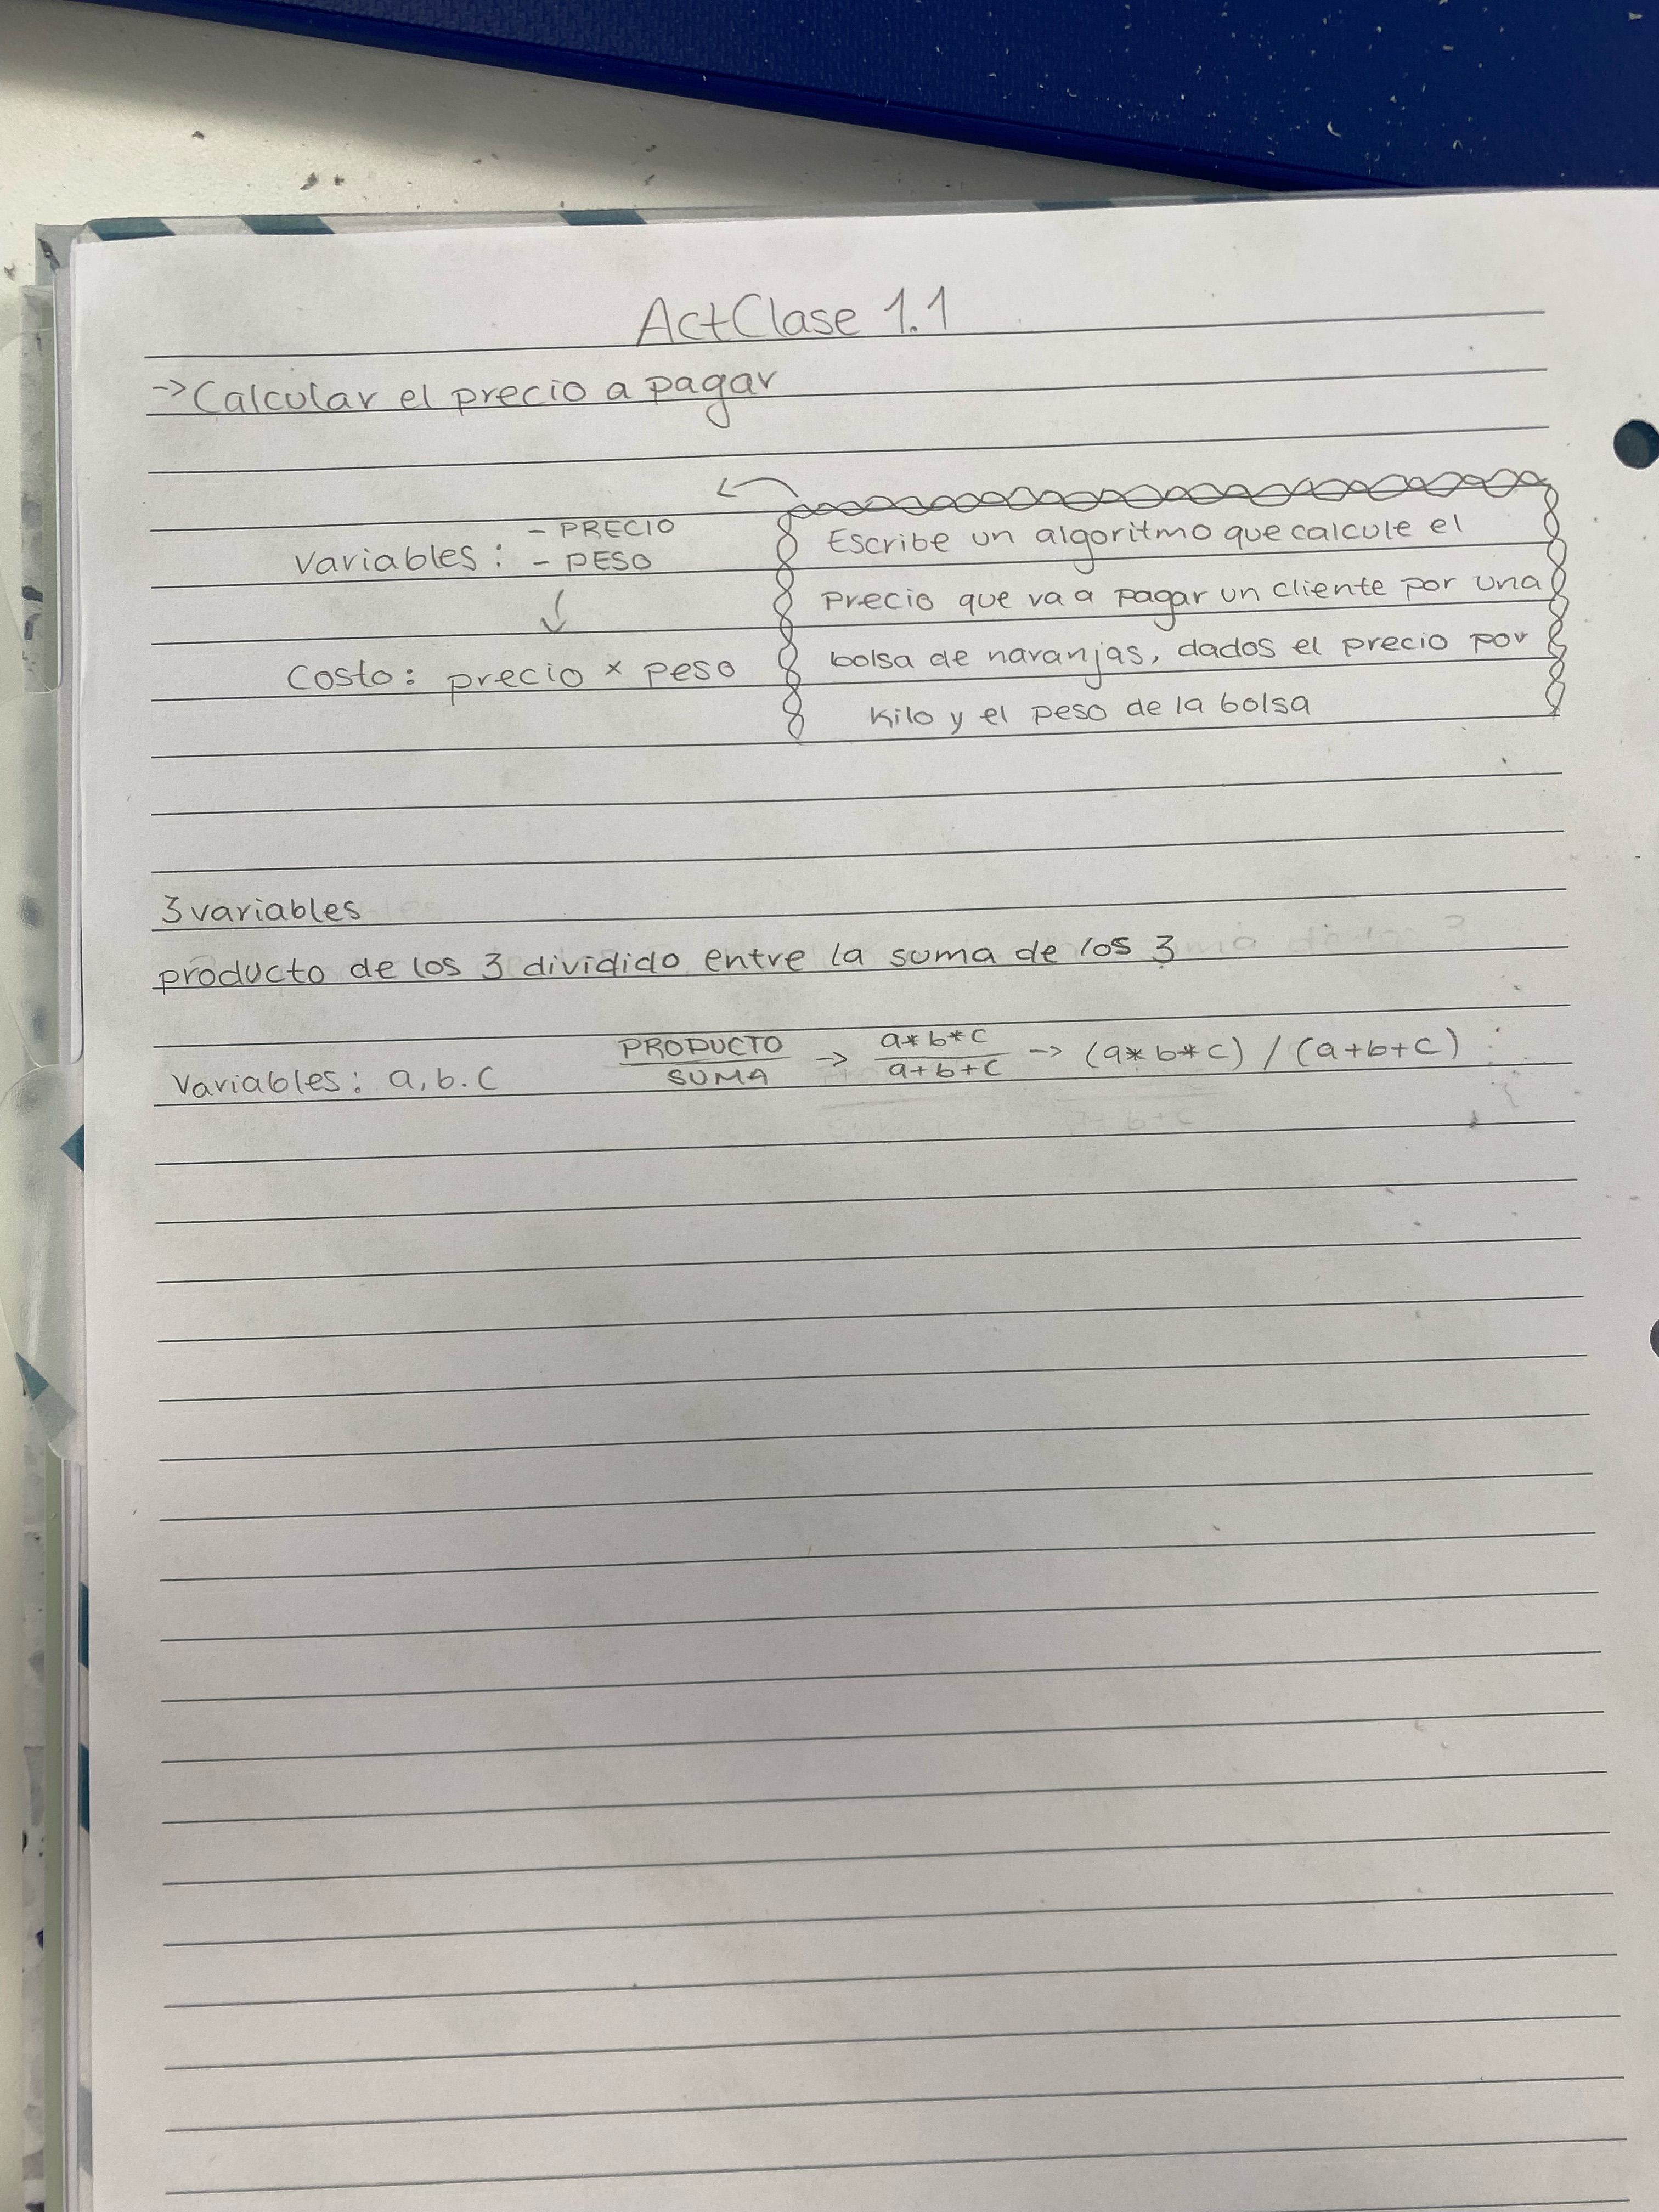 ActClase 1.1
->Calcular el precio a pagar
Variables: - PRECIO
- PESO
Costo: precio x peso
Escribe un algoritmo que calcule el
precio que va a pagar un cliente por una
bolsa de naranjas, dados el precio por
kilo y el peso de la bolsa
3 variables
producto de los 3 dividido entre la suma de los 3
Variables: a, b. c
PRODUCTO / SUMA -> a*b*c / a+b+c -> (a*b*c) / (a+b+c)